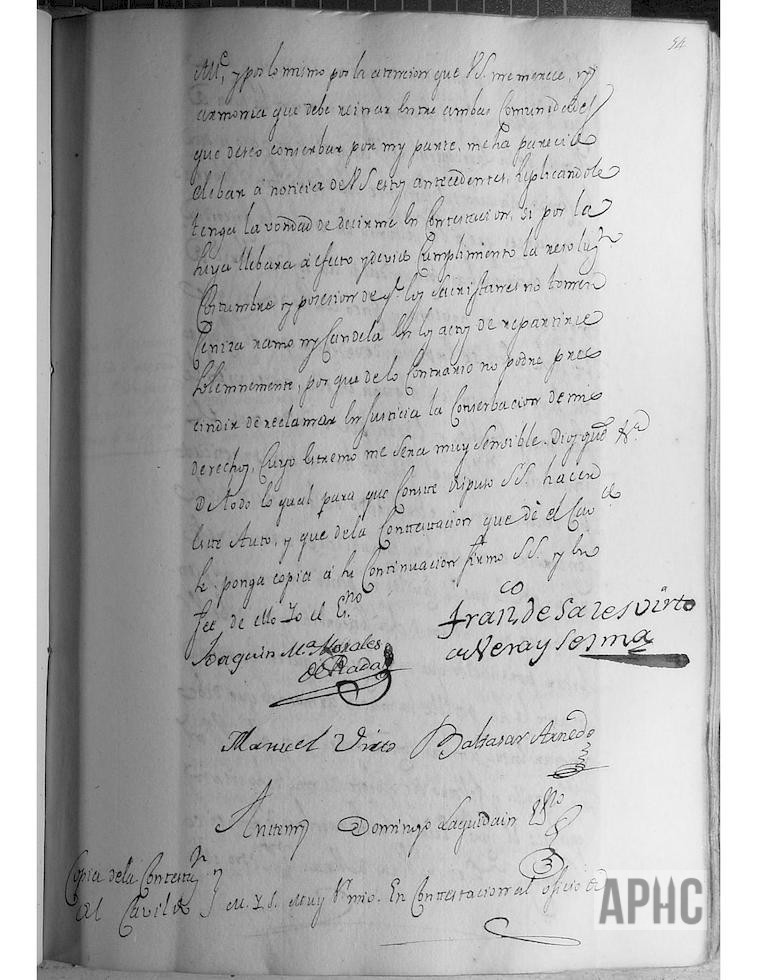 54
Mt.e, y por lo mismo por la atencion que V.S. me merece, y
armonia que debe reinar entre ambas Comunidades
que deseo conserbar por my parte, me ha parecido
elebar á noticia de V.S. estos antecedentes, suplicandole
tenga la vondad de decirme en Contestacion, si por la
suya llebara á efecto y devido Cumplimiento la resoluz.n
Costumbre y posesion de q.e los Sacristanes no tomen
Ceniza ramo ny Candela en los actos de repartirse
Solemnemente, porque delo Contrario no podre pres
cindir de reclamar en Justicia la Conserbacion de mis
derechos, Cuyo estremo me sera muy sensible. Dios gue. &.a
De todo lo qual para que Conste dispuso S.S. hacer
este Auto, y que dela Contestacion que dé el Cav.do
se ponga copia á su Continuacion firmo S.S. y en
fee de ello Yo el Es.no
Joaquin M.a Morales
de Rada
Fran.co de Sales Virto
de Vera y Sesma
Manuel Virto
Baltasar Arnedo
Antemy Domingo Laquidain Es.no
Copia dela Contestaz.n
del Cavildo
M. Y. S. Muy S.r mio. En Contestacion al oficio de
APHC